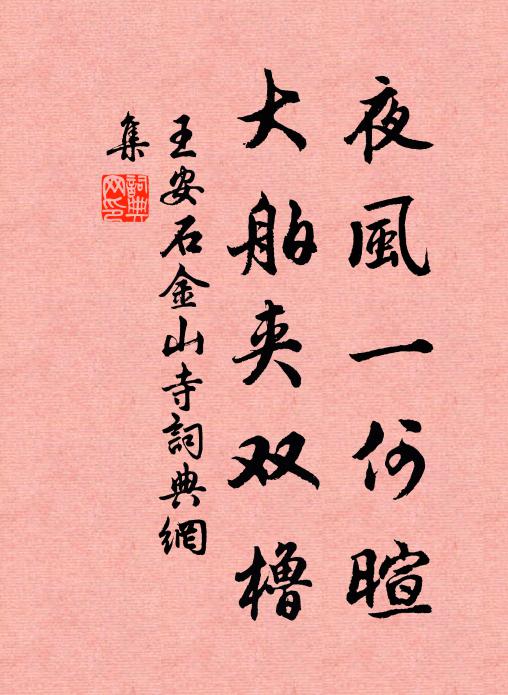 夜風一何暄
大舶夹双櫓
王安石金山寺詞典網
集
詞典网印